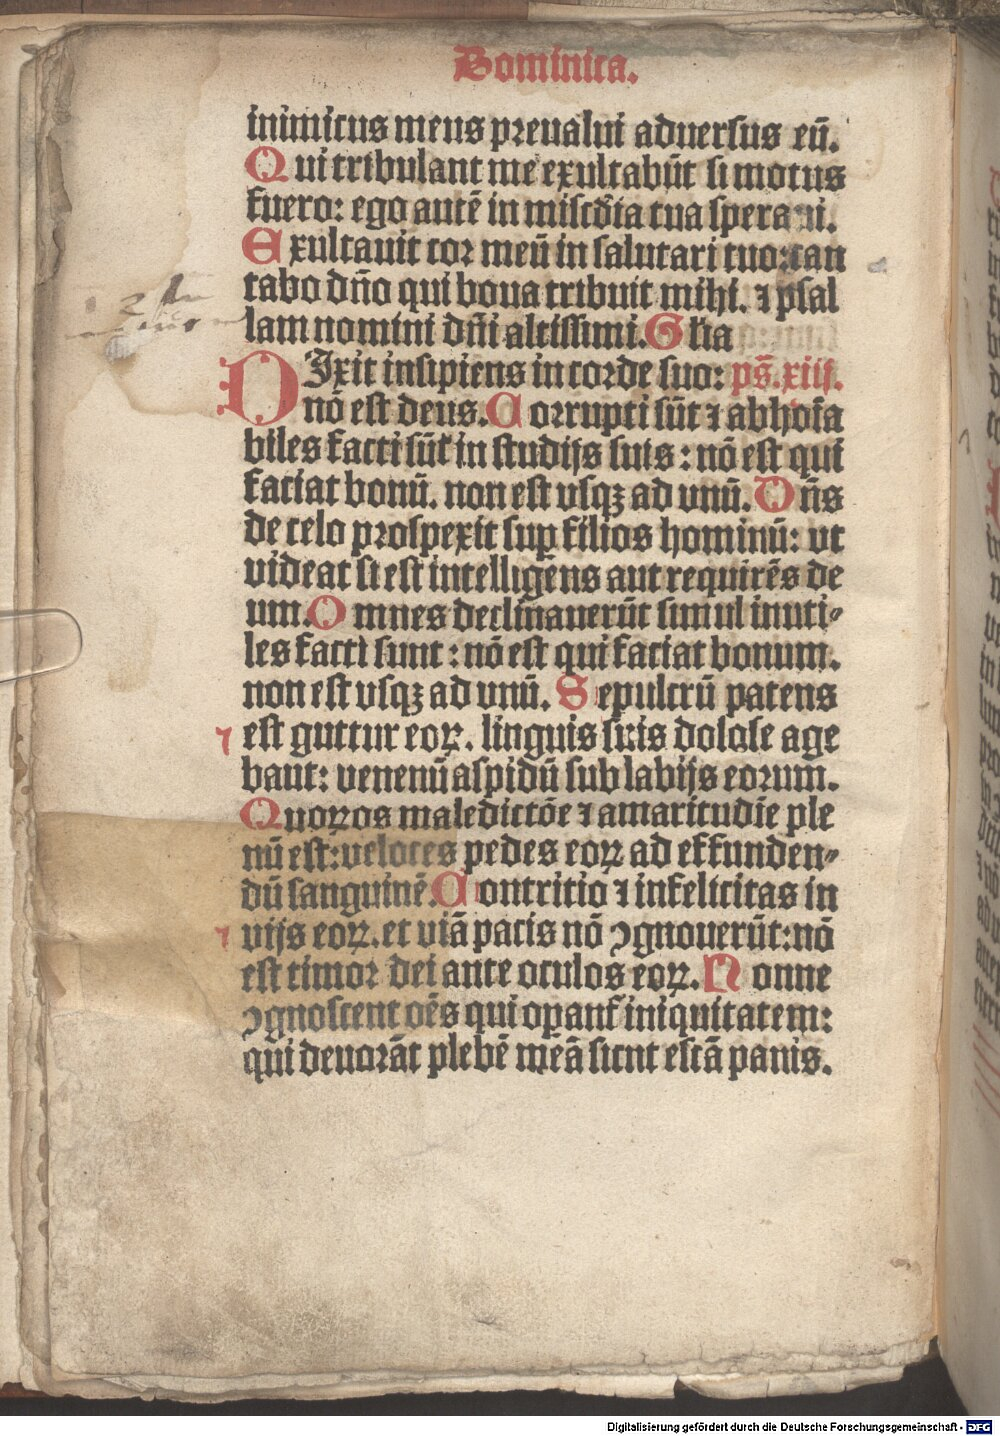 Dominica.
inimicus meus preualui aduersus eū.
Qui tribulant me exultabūt si motus
fuero: ego autē in miscd̄ia tua speraui.
Exultauit cor meū in salutari tuo: can
tabo dn̄o qui bona tribuit mihi. ⁊ psal
lam nomini dn̄i altissimi. Gl̄ia
DIxit insipiens in corde suo: ps̄. xiij.
nō est deus. Corrupti sūt ⁊ abhoīa
biles facti sūt in studijs suis: nō est qui
faciat bonū. non est vsqꝫ ad vnū. Dn̄s
de celo prospexit sup̱ filios hominū: vt
videat si est intelligēs aut requirēs de
um. Omnes declinauerūt simul inuti⸗
les facti sunt: nō est qui faciat bonum.
non est vsqꝫ ad vnū. Sepulcrū patens
est guttur eoꝝ. linguis suis dolose age
bant: venenū aspidū sub labijs eorum.
Quoꝝ os maledictōe ⁊ amaritudīe ple
nū est: veloces pedes eoꝝ ad effunden⸗
dū sanguinē. Contritio ⁊ infelicitas in
vijs eoꝝ. et viā pacis nō ꝯgnouerūt: nō
est timor dei ante oculos eoꝝ. Nonne
ꝯgnoscent oēs qui oꝑant̄ iniquitatem:
qui deuorāt plebē meā sicut escā panis.
Digitalisierung gefördert durch die Deutsche Forschungsgemeinschaft - DFG